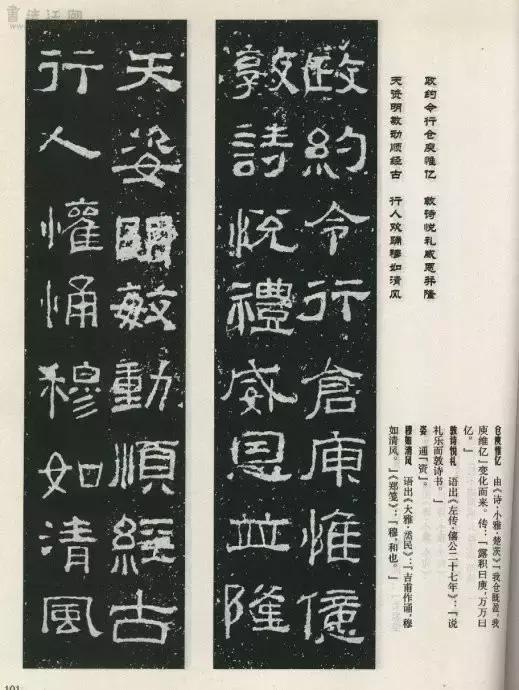 政约令行仓庾惟亿 敦诗悦礼威恩并隆
天资明敏动顺经古 行人欢踊穆如清风
仓庾惟亿 由《诗·小雅·楚茨》「我仓既盈，我
庾维亿」变化而来。传：「露积曰庾，万万曰
亿。」
敦诗悦礼 语出《左传·僖公二十七年》：「说
礼乐而敦诗书。」
姿 通「资」。
穆如清风 语出《大雅·烝民》：「吉甫作诵，穆
如清风。」《郑笺》：「穆，和也。」
政約令行倉庾惟億
敦詩悅禮威恩並隆
天姿明敏動順經古
行人懽悀穆如清風
101